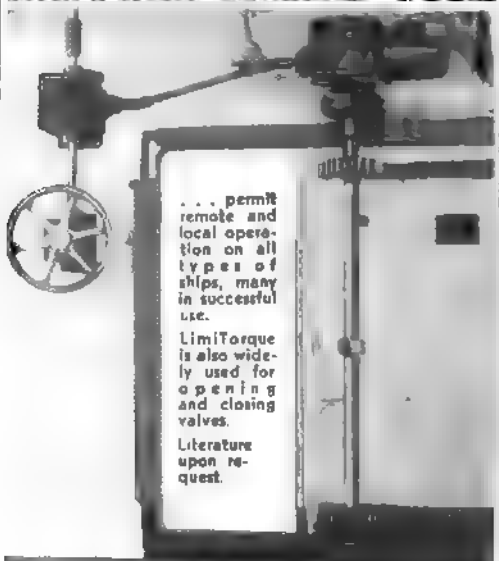 . . . permit
remote and
local opera-
tion on all
types of
ships, many
in successful
use.
LimiTorque
is also wide-
ly used for
opening
and closing
valves.
Literature
upon re-
quest.